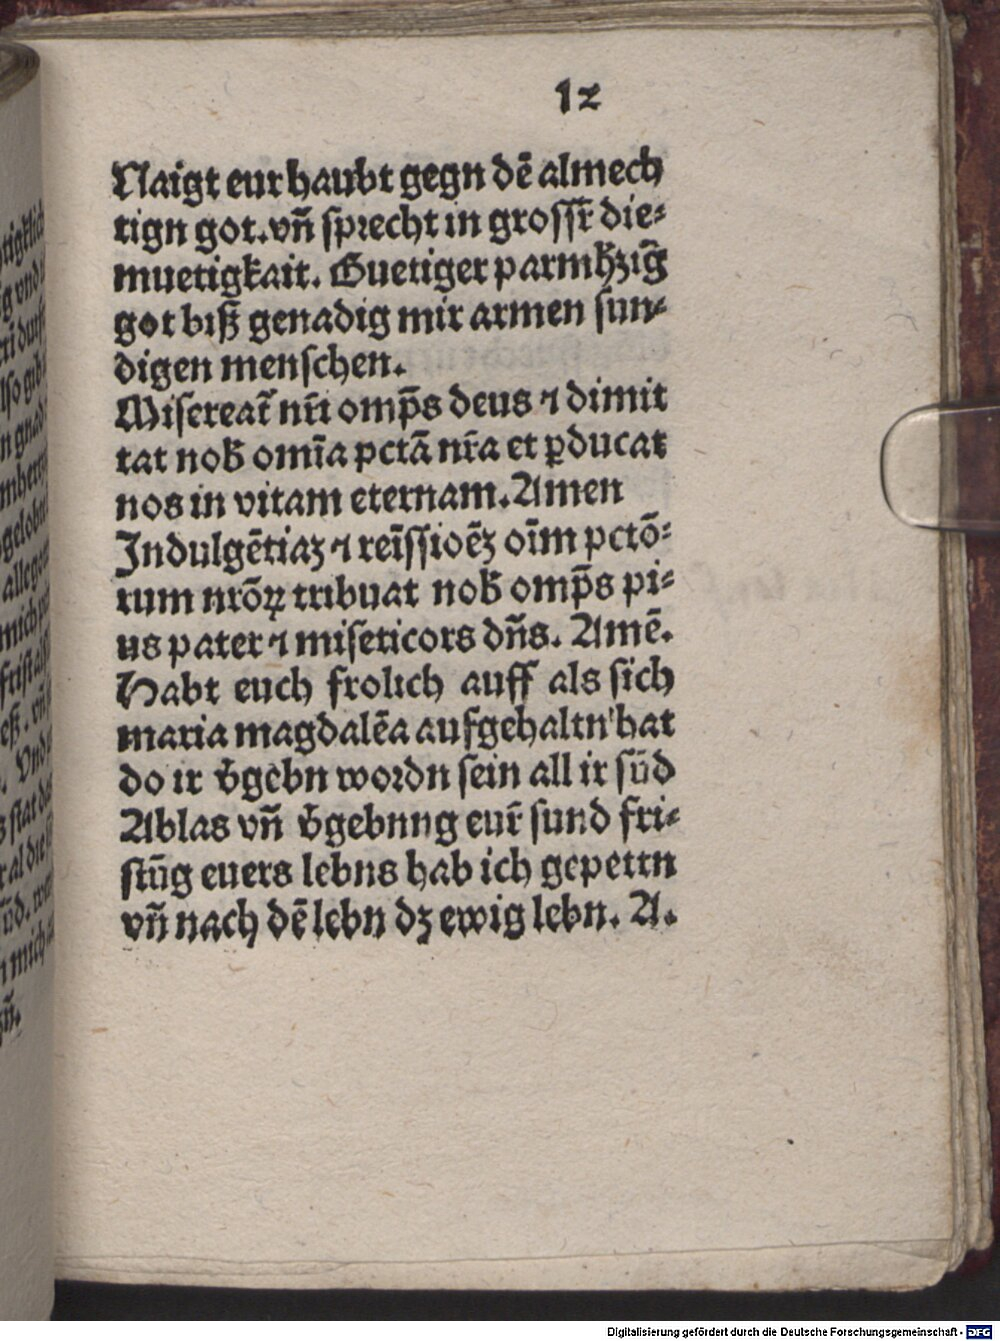 12
Naigt eur haubt gegn dē almech
tign got. vn̄ sprecht in grossr̄ die⸗
muetigkait. Guetiger parmh̄ziḡ
got biß genadig mir armen sun⸗
digen menschen.
Misereat̄ nr̄i omp̄s deus ⁊ dimit
tat nob̄ om̄ia pctā nr̄a et ꝑducat
nos in vitam eternam. Amen
Indulgētiaꝫ ⁊ reīssioēꝫ oīm pctō⸗
rum nrōꝝ tribuat nob̄ omp̄s pi⸗
us pater ⁊ miseticors dn̄s. Amē.
Habt euch frolich auff als sich
maria magdalēa aufgehaltn hat
do ir v̄gebn wordn sein all ir sūd
Ablas vn̄ v̄gebnng eur̄ sund fri⸗
stūg euers lebns hab ich gepettn
vn̄ nach dē lebn dꝫ ewig lebn. A.
Digitalisierung gefördert durch die Deutsche Forschungsgemeinschaft - DFG